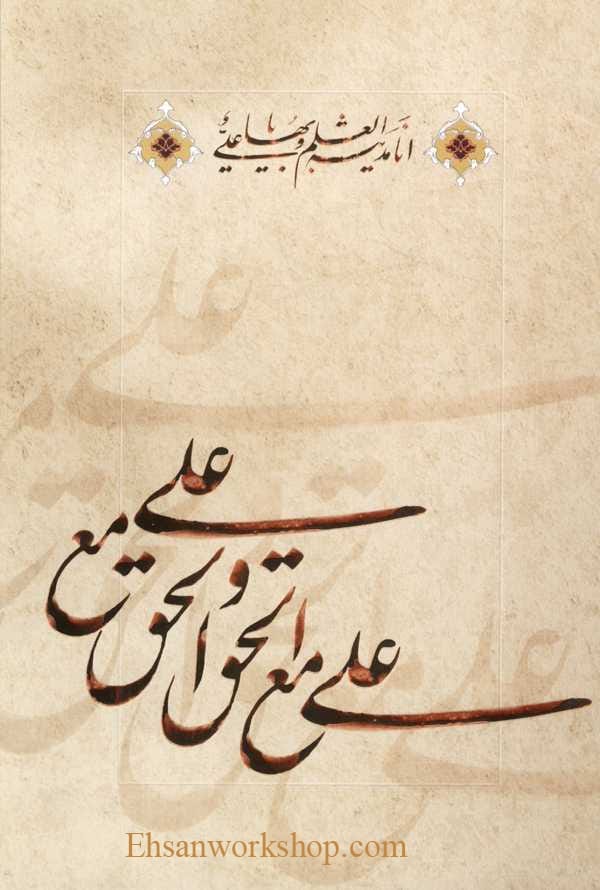 انا مدینة العلم و علیٌّ بابها
علی مع الحق و الحق مع علی
Ehsanworkshop.com